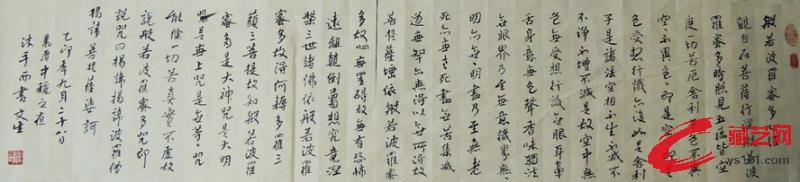 般若波羅蜜多心經
觀自在菩薩行深般若波
羅蜜多時照見五蘊皆空
度一切苦厄舍利子色不異
空空不異色色即是空空即是
色受想行識亦復如是舍利
子是諸法空相不生不滅不垢
不淨不增不減是故空中無
色無受想行識無眼耳鼻
舌身意無色聲香味觸法
無眼界乃至無意識界無無
明亦無無明盡乃至無老
死亦無老死盡無苦集滅
道無智亦無得以無所得故
菩提薩埵依般若波羅蜜
多故心無罣礙無罣礙故無有恐怖
遠離顛倒夢想究竟涅
槃三世諸佛依般若波羅
蜜多故得阿耨多羅三
藐三菩提故知般若波羅
蜜多是大神咒是大明
咒是無上咒是無等等咒
能除一切苦真實不虛故
說般若波羅蜜多咒即
說咒曰揭諦揭諦波羅僧
揭諦菩提薩婆訶
乙卯年九月二十八日
沐手而書
藏艺网
ys1001.com